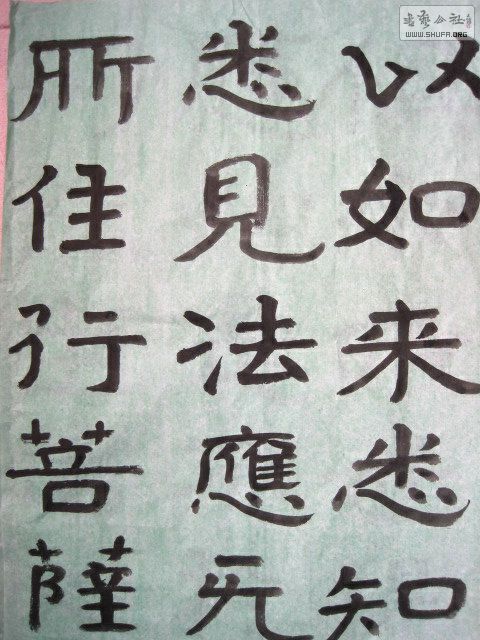 以如来悉知
悉見法應无
所住行菩薩
書藝公社
WWW.SHUFA.ORG